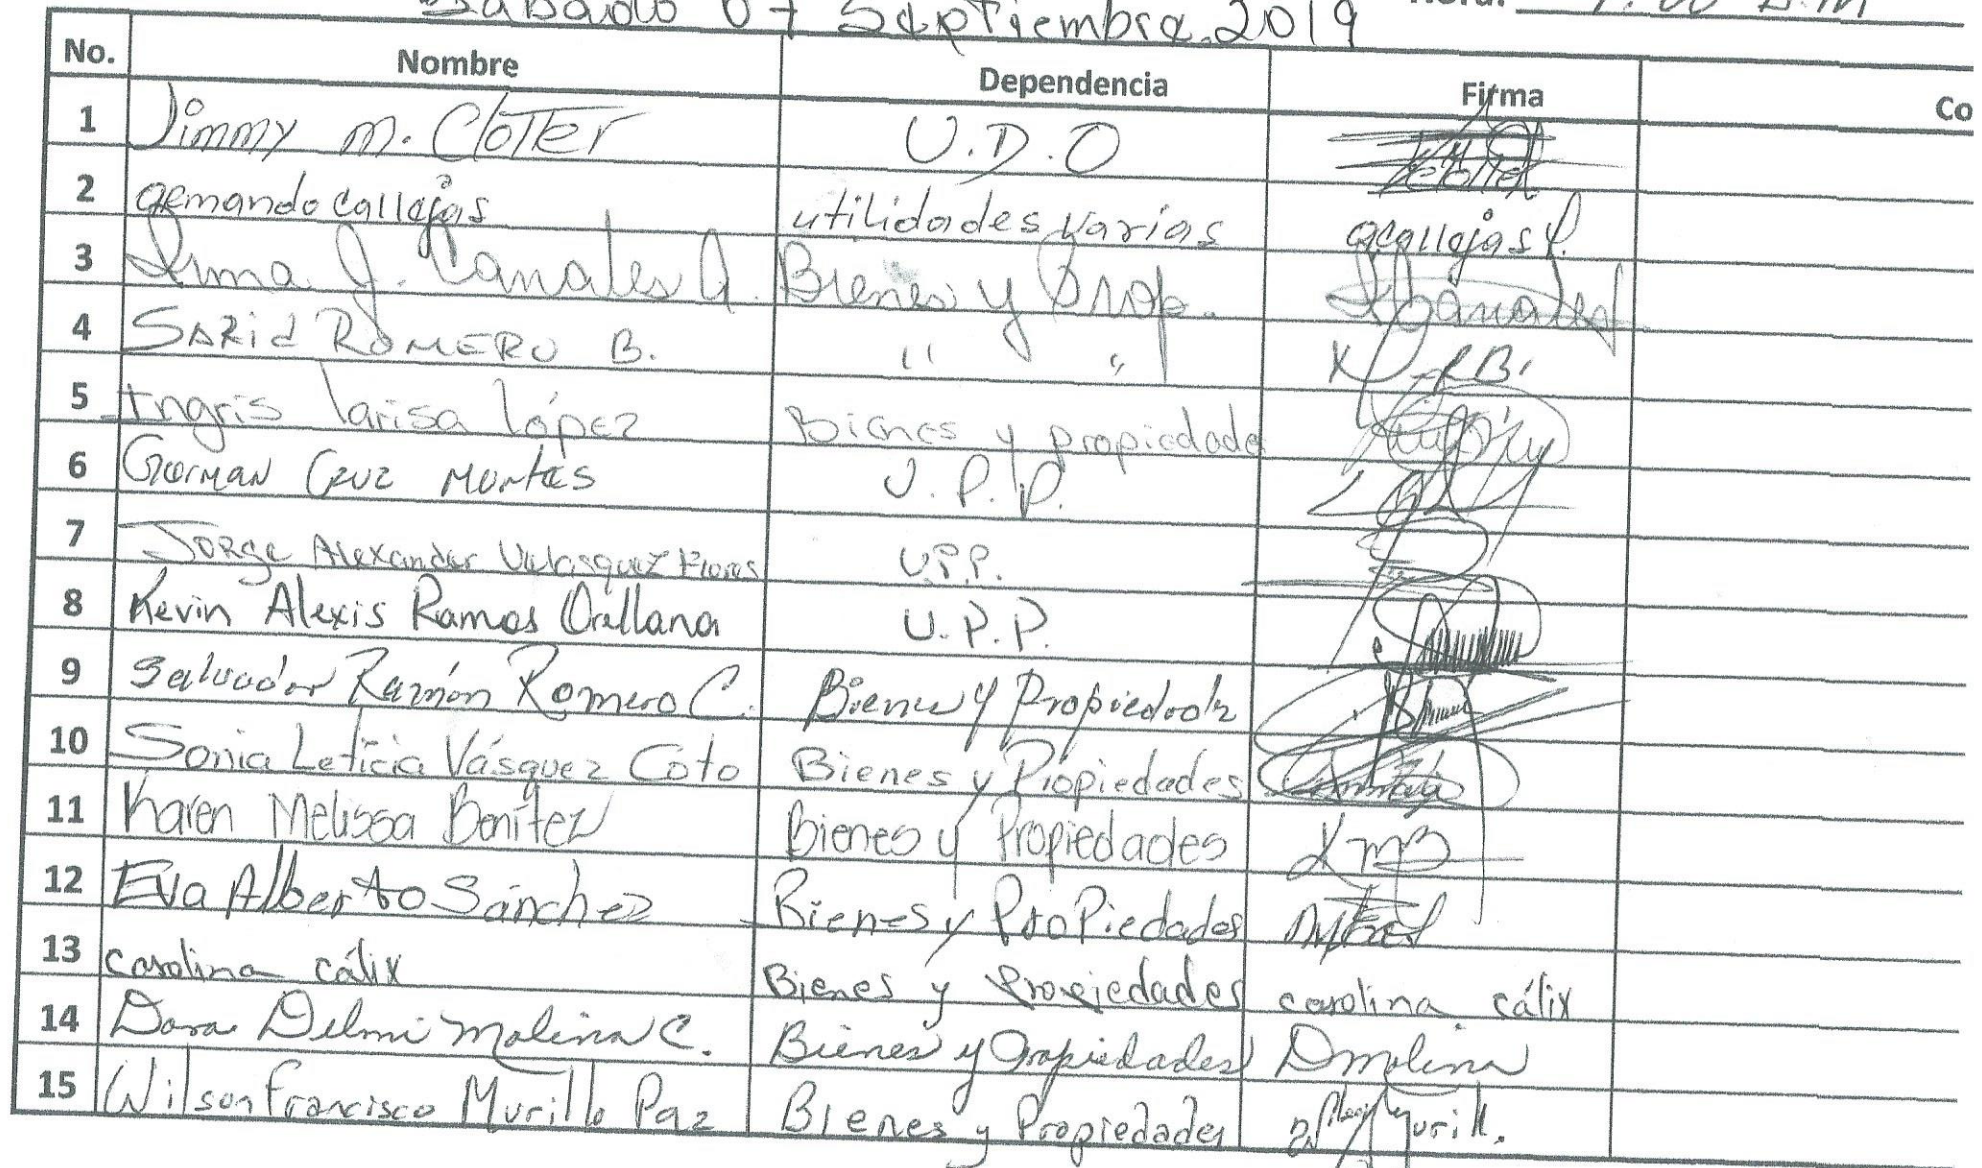 Sabado 07 Septiembre. 2019 Hora: 
No. Nombre Dependencia Firma Co
1 Jimmy M. Cloter U.D.O
2 Armando Callejas utilidades varias acallejas
3 Irma J. Canales A. Bienes y Prop. 
4 SARId ROMERO B. " "
5 Ingris larisa lópez Bienes y propiedade
6 German Cruz Montes U.P.P.
7 Jorge Alexander Velasquez Flores U.P.P.
8 Kevin Alexis Ramos Orellana U.P.P.
9 Salvador Ramón Romero C. Bienes y Propiedades
10 Sonia Leticia Vásquez Coto Bienes y Propiedades
11 Karen Melissa Benítez Bienes y Propiedades KMB
12 Eva Alberto Sánchez Bienes y ProPiedades
13 carolina cálix Bienes y Propiedades carolina cálix
14 Dora Delmi Molina C. Bienes y Propiedades Dmolina
15 Wilson Francisco Murillo Paz Bienes y Propiedades